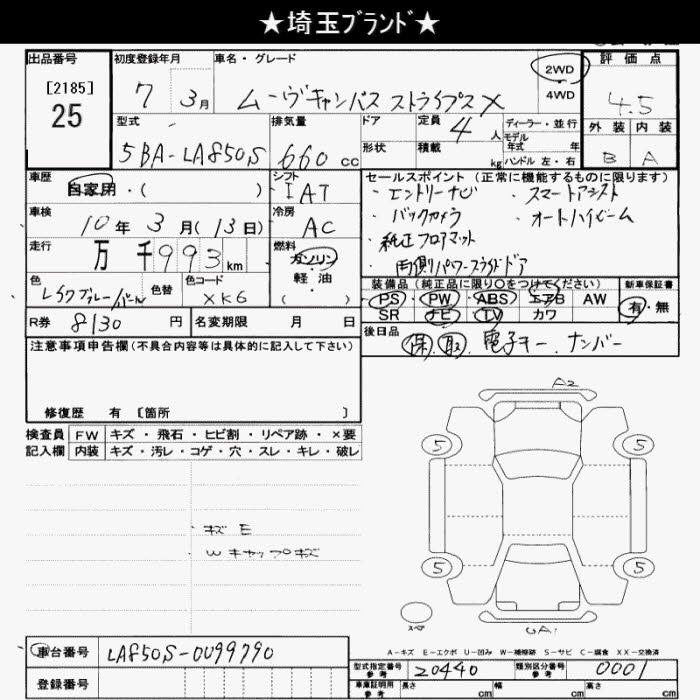 ★埼玉ブランド★
出品番号 初度登録年月 車名・グレード 評価点
[2185]
25
7 3月 ムーヴキャンバス ストライプスX 2WD 4WD 4.5
型式 排気量 ドア 定員 ディーラー・並行 外装 内装
5BA-LA850S 660cc 形状 積載 4人 kg モデル年式 年 ハンドル 左・右 B A
車歴 シフト セールスポイント (正常に機能するものに限ります)
自家用・( ) IAT ・エントリーナビ ・スマートアシスト
車検 冷房 ・バックカメラ ・オートハイビーム
10年3月(13日) AC ・純正フロアマット
走行 燃料 ・両側パワースライドドア
万 千993km ガソリン 軽油 ( )
色 色替 色コード 装備品 (純正品に限り○をつけてください) 新車保証書
XK6 PS PW ABS エアB AW 有・無
SR ナビ TV カワ
R券 8130円 名変期限 月 日 後日品
保.取 電子キー.ナンバー
注意事項申告欄(不具合内容等は具体的に記入して下さい)
修復歴 有 [箇所 ]
検査員 FW キズ・飛石・ヒビ割・リペア跡・×要
記入欄 内装 キズ・汚レ・コゲ・穴・スレ・キレ・破レ
A2
5 5
キズ E
W キャップキズ
5 5
スペア
A-キズ E-エクボ U-凹み W-補修跡 S-サビ C-腐食 XX-交換済
車台番号 LA850S-0099790
登録番号
型式指定番号 参考 20440 類別区分番号 参考 0001
車庫証明用 参考 長さ cm 幅 cm 高さ cm